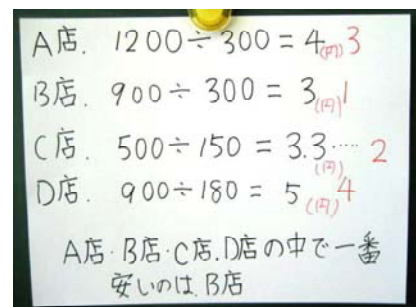 A店. 1200÷300=4(円) 3
B店. 900÷300=3(円) 1
C店. 500÷150=3.3……(円) 2
D店. 900÷180=5(円) 4
A店・B店・C店.D店の中で一番
安いのは.B店